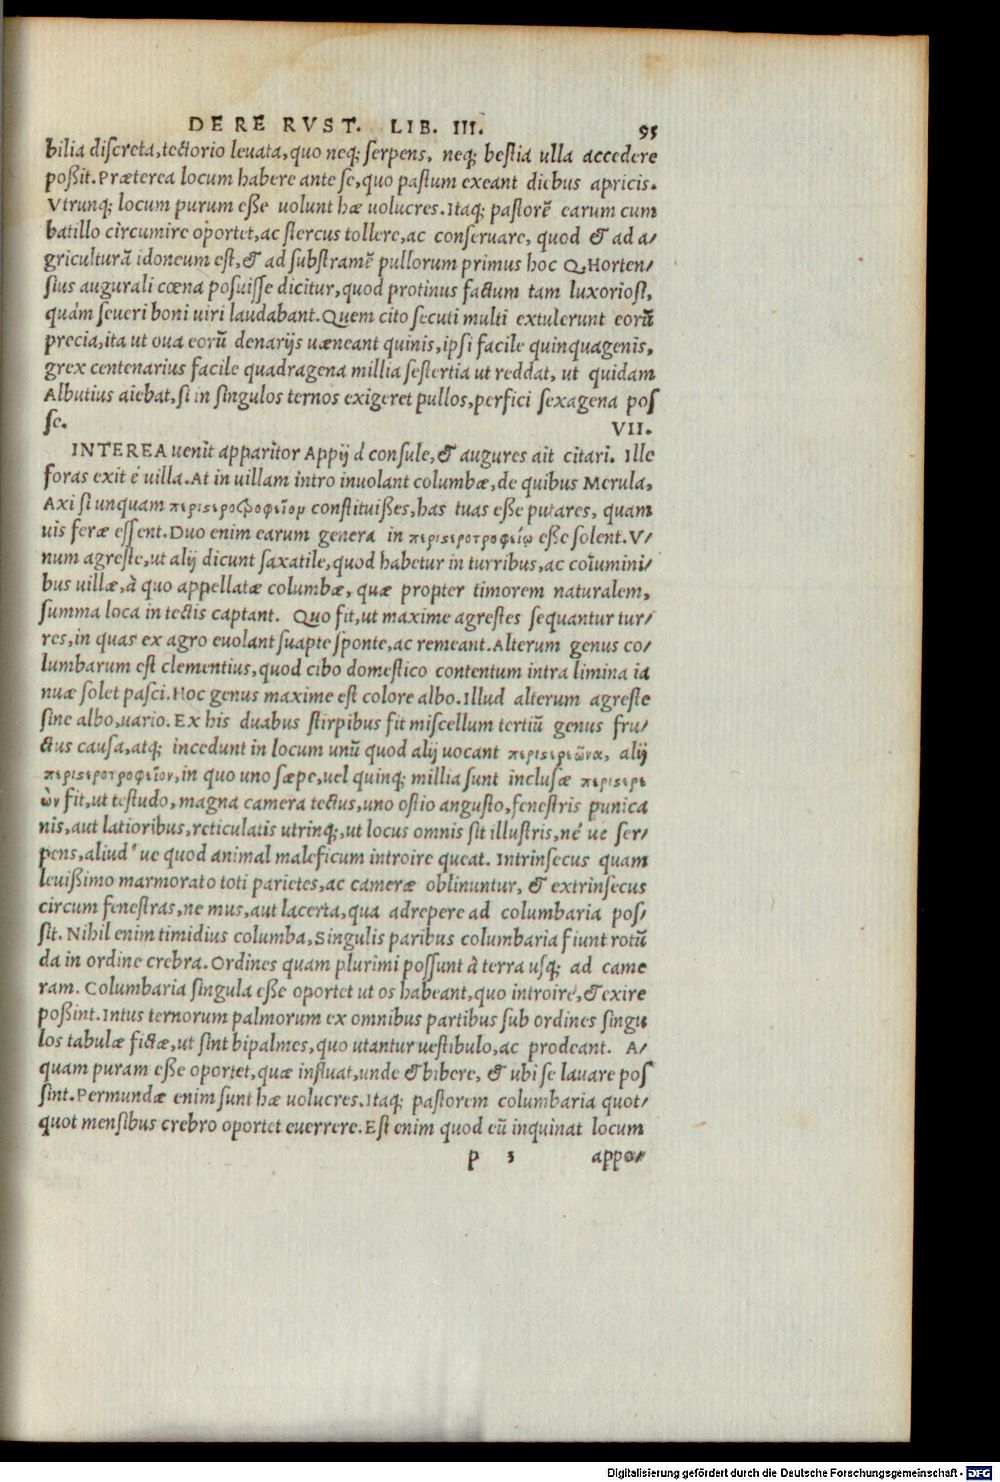 DE RE RVST. LIB. III. 95
bilia discreta, tectorio leuata, quo neq; serpens, neq; bestia ulla accedere
poßit. Præterea locum habere ante se, quo pastum exeant diebus apricis.
Vtrunq; locum purum eße uolunt hæ uolucres. Itaq; pastorē earum cum
batillo circumire oportet, ac stercus tollere, ac conseruare, quod & ad a/
griculturā idoneum est, & ad substramē pullorum primus hoc Q. Horten/
sius augurali cœna posuisse dicitur, quod protinus factum tam luxoriosi,
quàm seueri boni uiri laudabant. Quem cito secuti multi extulerunt eorū
precia, ita ut oua eorū denarijs uæneant quinis, ipsi facile quinquagenis,
grex centenarius facile quadragena millia sestertia ut reddat, ut quidam
Albutius aiebat, si in singulos ternos exigeret pullos, perfici sexagena pos
se. VII.
INTEREA uenit apparitor Appij à consule, & augures ait citari. Ille
foras exit è uilla. At in uillam intro inuolant columbæ, de quibus Merula,
Axi si unquam περιστεροτροφεῖον constituißes, has tuas eße putares, quam
uis feræ essent. Duo enim earum genera in περιστεροτροφείῳ eße solent. V/
num agreste, ut alij dicunt saxatile, quod habetur in turribus, ac columini/
bus uillæ, à quo appellatæ columbæ, quæ propter timorem naturalem,
summa loca in tectis captant. Quo fit, ut maxime agrestes sequantur tur/
res, in quas ex agro euolant suapte sponte, ac remeant. Alterum genus co/
lumbarum est clementius, quod cibo domestico contentum intra limina ia
nuæ solet pasci. Hoc genus maxime est colore albo. Illud alterum agreste
sine albo, uario. Ex his duabus stirpibus fit miscellum tertiū genus fru/
ctus causa, atq; incedunt in locum unū quod alij uocant περιστερεῶνα, alij
περιστεροτροφεῖον, in quo uno sæpe, uel quinq; millia sunt inclusæ περιστερε
ὼν fit, ut testudo, magna camera tectus, uno ostio angusto, fenestris punica
nis, aut latioribus, reticulatis utrinq;, ut locus omnis sit illustris, né ue ser/
pens, aliud ue quod animal maleficum introire queat. Intrinsecus quam
leuißimo marmorato toti parietes, ac cameræ oblinuntur, & extrinsecus
circum fenestras, ne mus, aut lacerta, qua adrepere ad columbaria pos/
sit. Nihil enim timidius columba, Singulis paribus columbaria fiunt rotū
da in ordine crebra. Ordines quam plurimi possunt à terra usq; ad came
ram. Columbaria singula eße oportet ut os habeant, quo introire, & exire
poßint. Intus ternorum palmorum ex omnibus partibus sub ordines singu
los tabulæ fictæ, ut sint bipalmes, quo utantur uestibulo, ac prodeant. A/
quam puram eße oportet, quæ influat, unde & bibere, & ubi se lauare pos
sint. Permundæ enim sunt hæ uolucres. Itaq; pastorem columbaria quot/
quot mensibus crebro oportet euerrere. Est enim quod eū inquinat locum
p 3 appo/
Digitalisierung gefördert durch die Deutsche Forschungsgemeinschaft - DFG